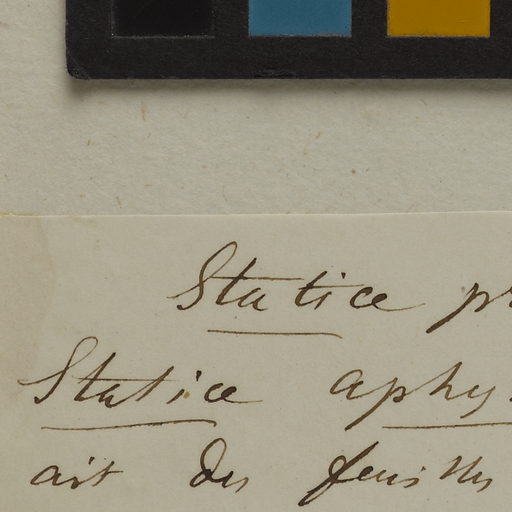 Statice pr
Statice aphy
ait des feuilles